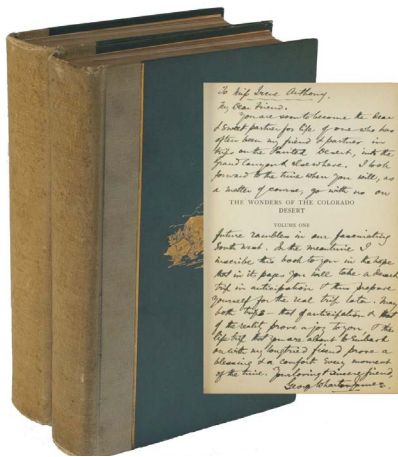 To Miss Irene Anthony.
My Dear Friend.
You are soon to become the dear
& sweet partner for life of one who has
often been my friend & partner in
trips on the Painted Desert, into the
Grand Canyon & elsewhere. I look
forward to the time when you will, as
a matter of course, go with us on
THE WONDERS OF THE COLORADO
DESERT
VOLUME ONE
future rambles in our fascinating
South west. In the meantime I
inscribe this book to you in the hope
that in its pages you will take a desert
trip in anticipation & thus prepare
yourself for the real trip later. May
both trips - that of anticipation & that
of the reality prove a joy to you & the
life trip that you are about to embark
on with my longtried friend prove a
blessing & a comfort every moment
of the time. Your loving & sincere friend,
George Wharton James.